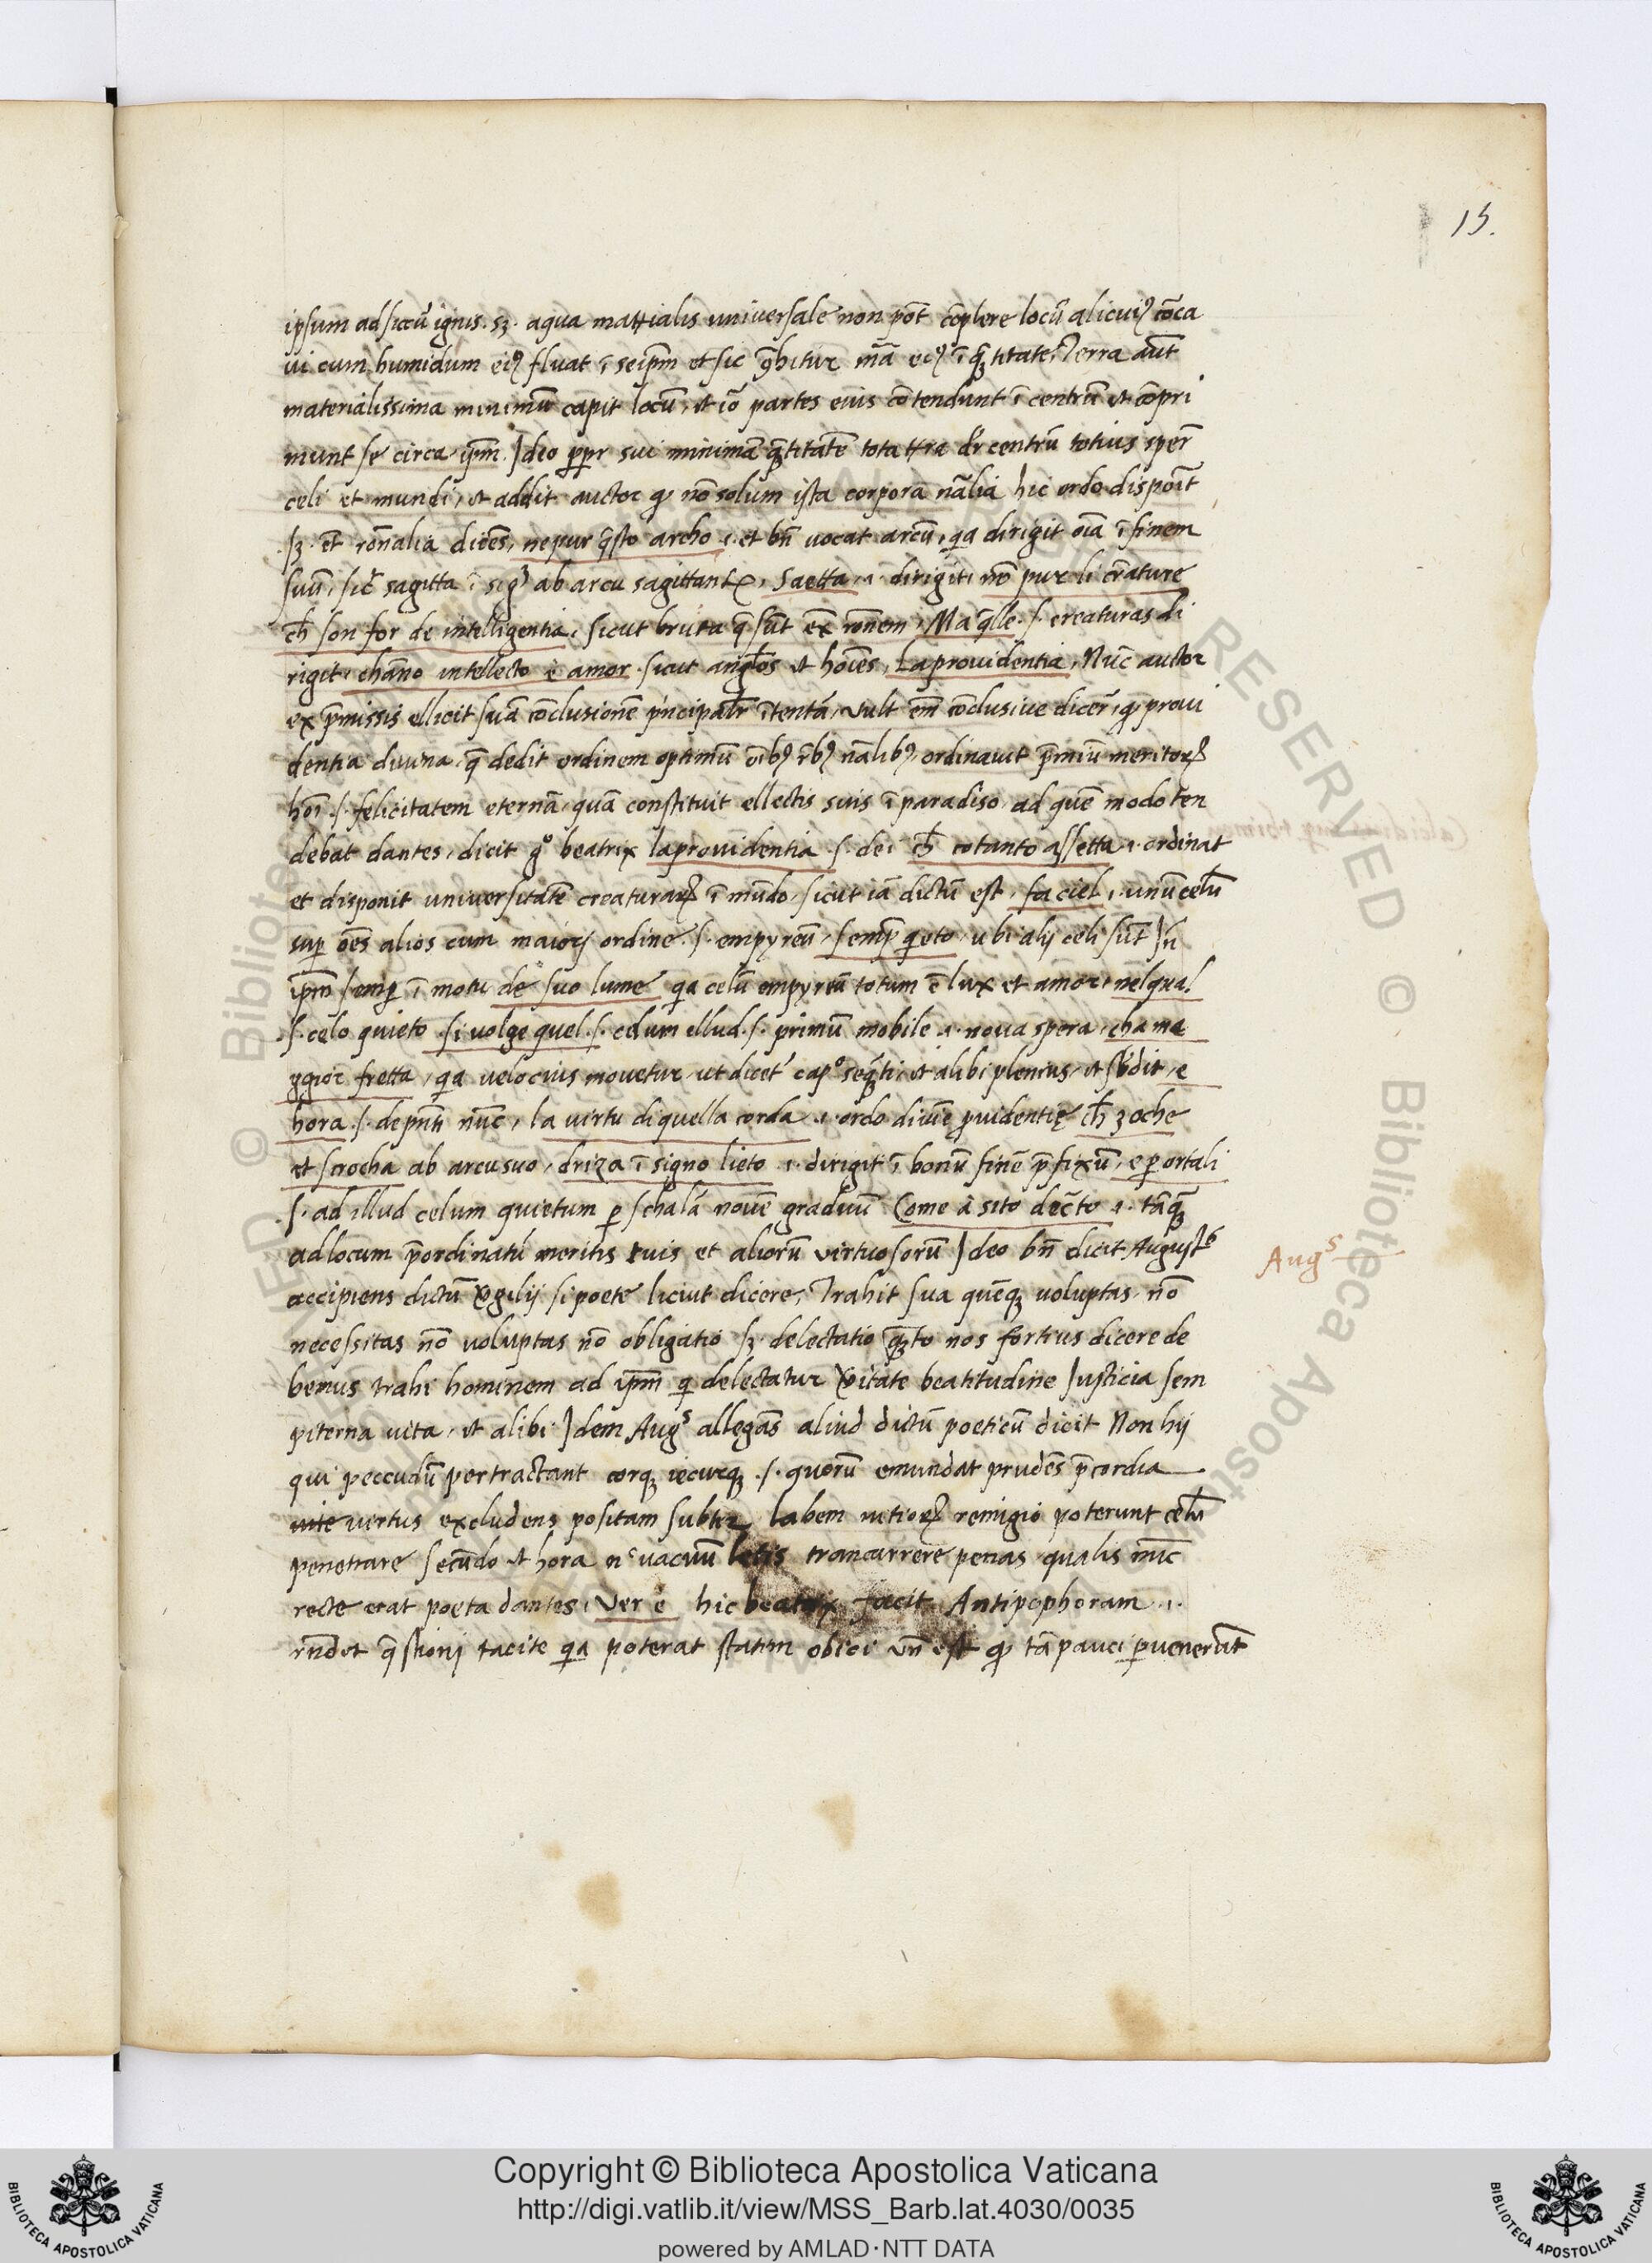 15.
ipsum ad siccũ ignis. sz. aqua mattialis universale non põt cõplere locũ alicuiꝰ cõca
ui cum humidum eiꝰ fluat ĩ seipm̃ et sic ñ̃a eiꝰ ĩ qz̃titate. Terra aut̃
materialissima minimũ capit locũ, et iõ partes eius cõtendunt ĩ centrũ et cõpri
munt se circa ip̃m. Ideo p̱pr sui minimã qz̃titatẽ tota ttra dr̃ centrũ totius sper̃
celi et mundi, et addit auctor ꝙ nõ solum ista corpora nãlia hic ordo dispoĩt
. sz. et̃ rõnalia dicẽs, ne pur q̃sto archo .i. et bñ uocat arcũ, qa dirigit oĩa ĩ finem
suũ, sic̃ sagitta ĩ sigꝫ ab arcu sagittant̃, saetta, .i. dirigit, nõ pur li cr̃ature
ch̃ son for de intelligentia, sicut bruta q̃ sũt ex̃ rõnem, Ma q̃lle .s. creaturas di
rigit, chãno intellecto è amor sicut angl̃os et hoĩes, La prouidentia, Nũc auctor
ex p̃missis ellicit suã cõclusionẽ p̃ncipalr̃ ĩtentã, uult em̃ cõclusiue dicer̃, ꝙ proui
dentia diuina, q̃ dedit ordinem optimũ oĩbꝰ r̃bꝰ nãlibꝰ, ordinauit p̃miũ meritoꝝ
hoĩ .s. felicitatem eternã, quã constituit ellectis suis ĩ paradiso ad quẽ modo ten
debat dantes, dicit gº beatrix la prouidentia .s. dei ch̃ cotanto assetta .i. ordinat
et disponit uniuersitatẽ creaturaꝝ ĩ mũdo, sicut iã dictũ est, fa ciel, .i. unũ celũ
suꝑ oẽs alios cum maiorj ordine .s. empyreũ, semp̃ qieto, ubi alij celi sũt Iñ
ip̃m semꝑ ĩ motu de suo lume qa celũ empyreũ totum ẽ lux et amor, nel qual
.s. celo quieto .si uolge quel .s. celum illud .s. primũ mobile .i. noua spera, cha ma
ggior fretta, qa uelocius mouetur, ut dicet̃ capº seq̃ti, et alibi plenius, et s̃bdit, e
hora .s. de pñti nũc, la uirtu di quella corda .i. ordo diuĩe ꝓuidentiȩ ch̃ zoche
et scrocha ab arcu suo, driza ĩ signo lieto .i. dirigit ĩ bonũ finẽ p̃fixũ, e ꝑ ortali
.s. ad illud celum quietum ꝑ schalã nouẽ graduũ Come à sito dec̃to .i. tãqꝫ
ad locum p̃ordinatũ meritis tuis et aliorũ uirtuosorũ Ideo bñ dicit August
accipiens dictũ V̱gilij si poete licuit dicere, Trahit sua quẽqꝫ uoluptas nõ
necessitas nõ uoluptas nõ obligatio sz. delectatio qz̃to nos fortius dicere de
bemus trahi hominem ad ip̃m qi delectatur V̱itate beatitudine Iusticia sem
piterna uita, et alibi Idem Augs allegãs aliud dictũ poeticũ dicit Non hij
qui peccudũ pertractant corqꝫ iecurqꝫ .s. quorũ emundat prudẽs p̃cordia
uirtus excludens positam subter labem uitioꝝ remigio poterunt celũ
penetrare secũdo et hora uacuũ letis trancurrere penas qualis nũc
recte erat poeta dantes, Ver è hic beatrix facit Antipophoram .i.
rñdet q̃stionj tacite qa poterat statim obici uñ est ꝙ tã pauci ꝑuenerũt
Augs